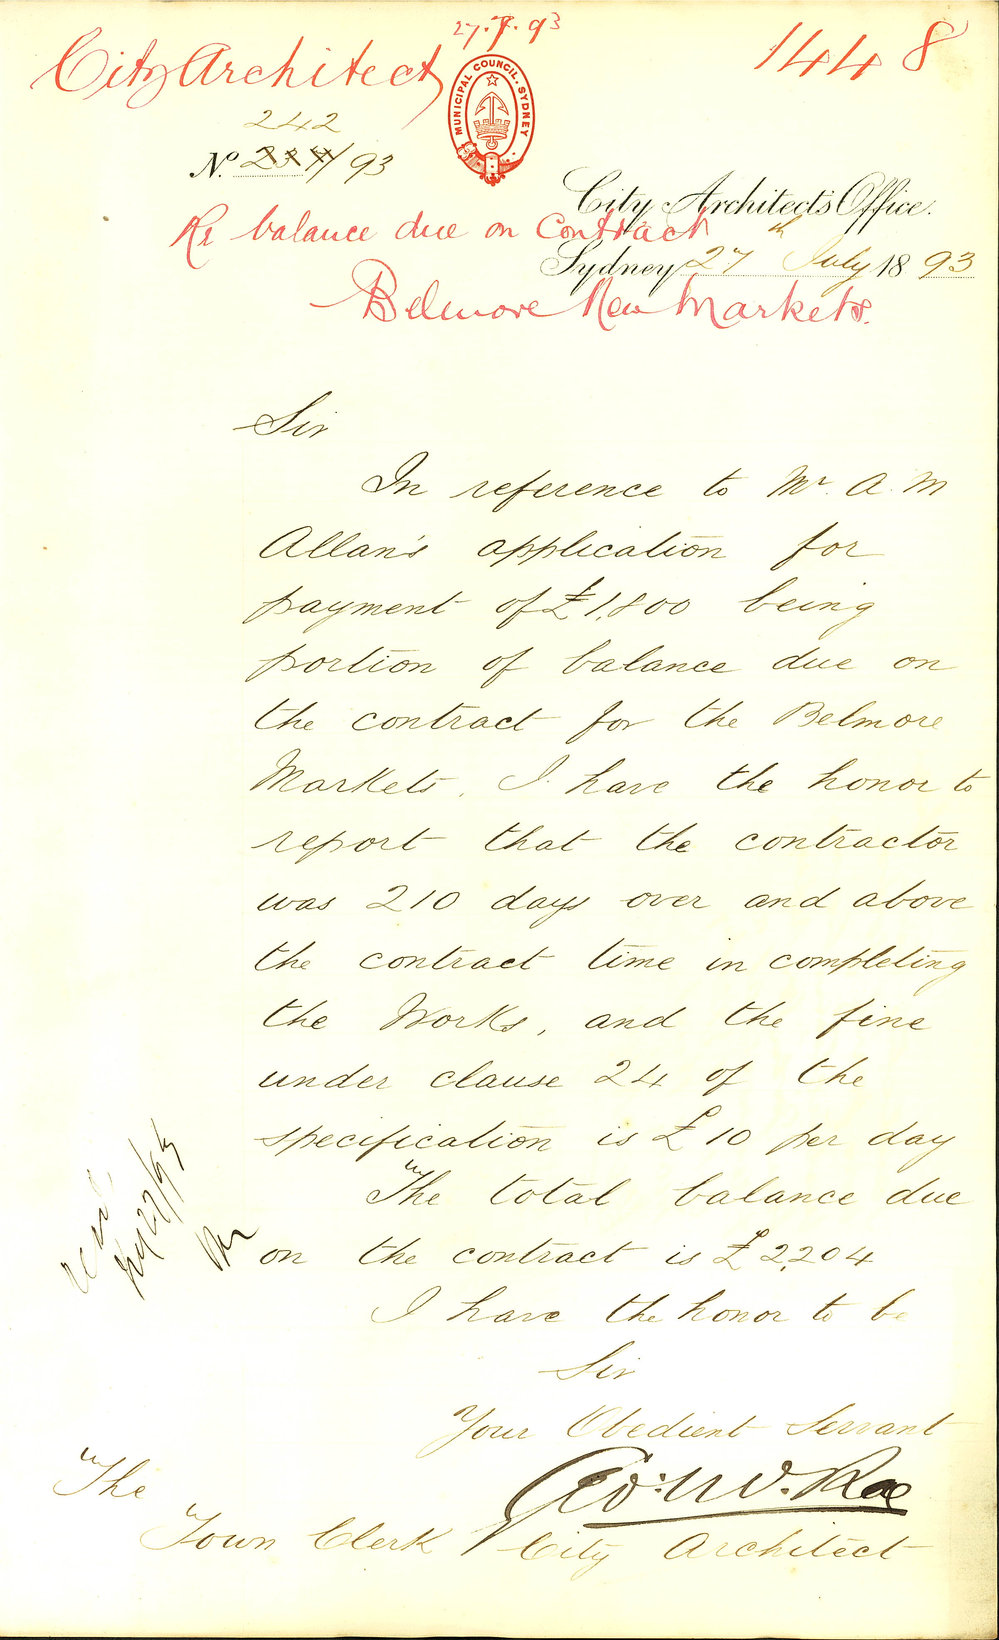 27.7.93
City Architect
1448
MUNICIPAL COUNCIL. SYDNEY
242
No. 93
City Architect's Office.
Re balance due on Contract
Sydney 27th July 1893
Belmore New Markets.
Sir
In reference to Mr. A. M
Allan's application for
payment of £1,800 being
portion of balance due on
the contract for the Belmore
Markets. I have the honor to
report that the contractor
was 210 days over and above
the contract time in completing
the Works, and the fine
under clause 24 of the
specification is £10 per day
The total balance due
on the contract is £2,204
I have the honor to be
Sir
Your Obedient Servant
Geo: McRae
The
Town Clerk City Architect